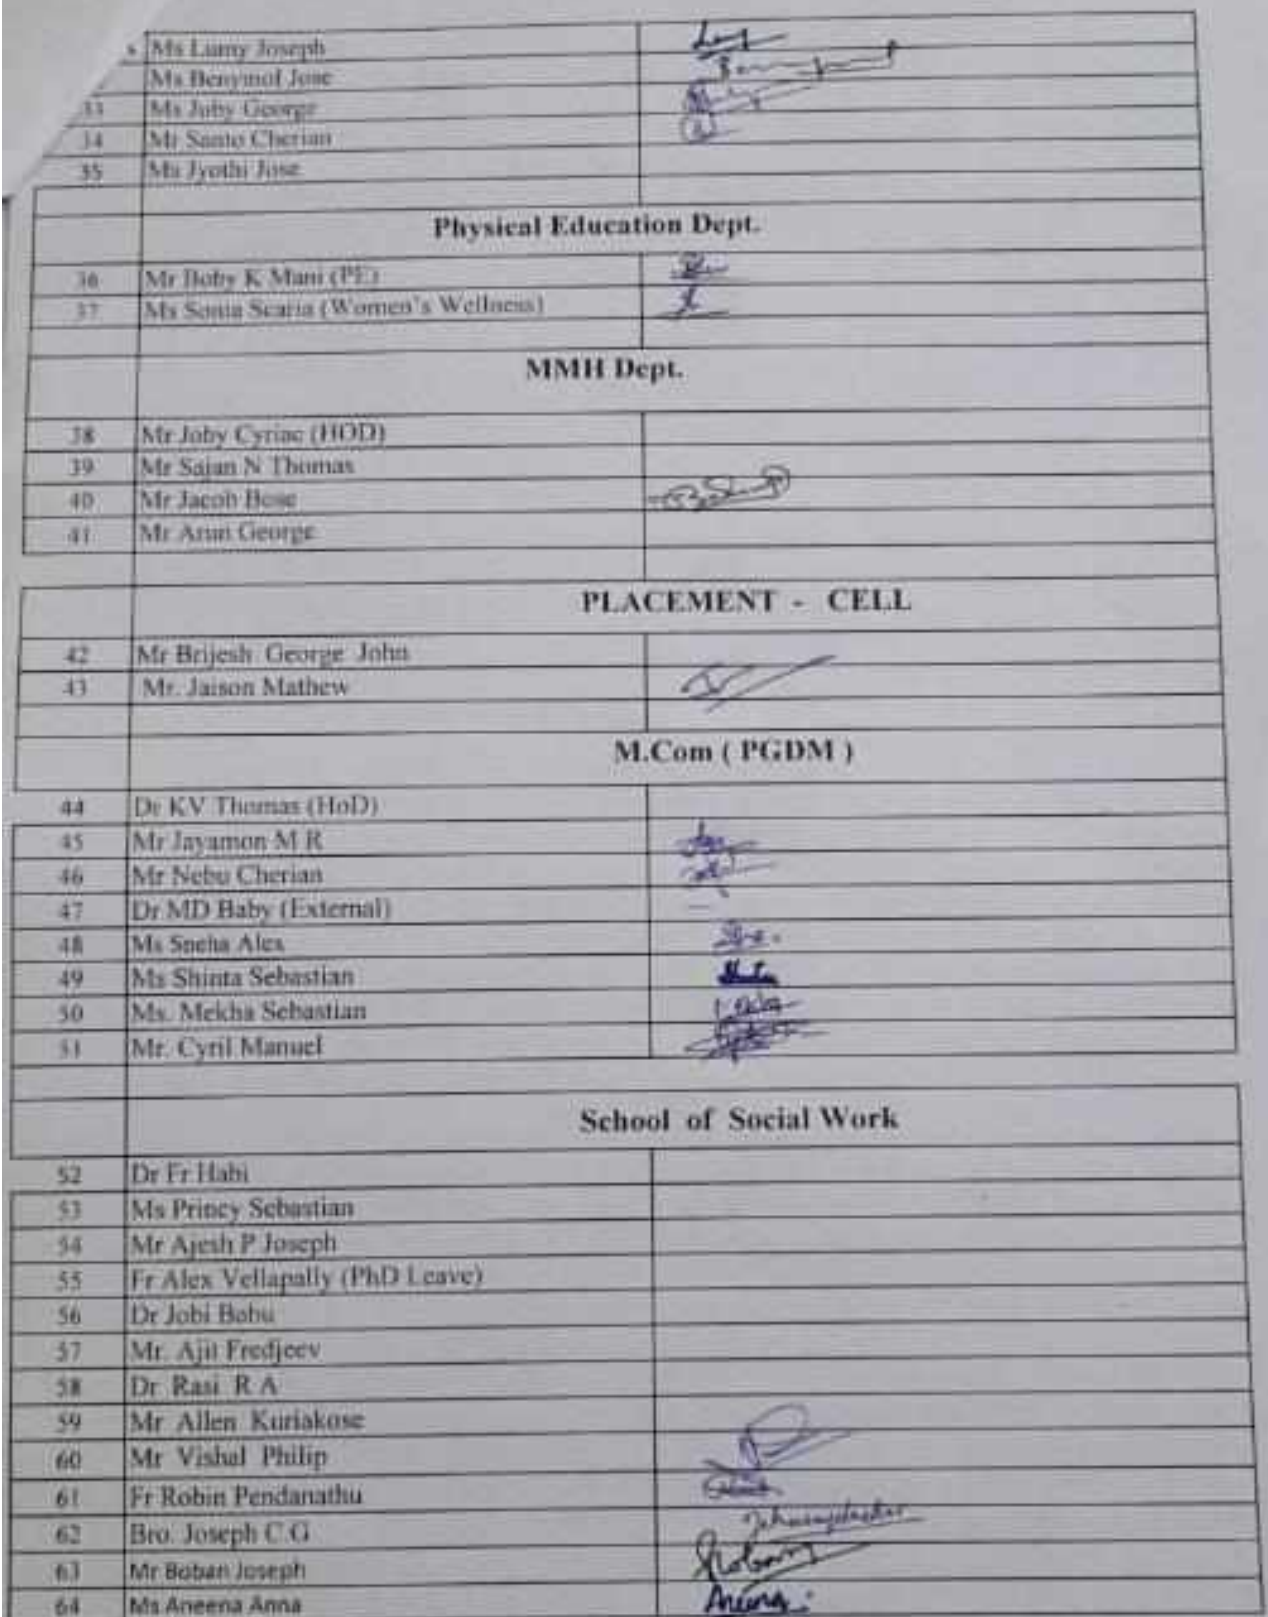 Ms Lumy Joseph
Ms Benymol Jose
33 Ms Juby George
34 Mr Santo Cherian
35 Ms Jyothi Jose
Physical Education Dept.
36 Mr Boby K Mani (PE)
37 Ms Sonia Scaria (Women's Wellness)
MMH Dept.
38 Mr Joby Cyriac (HOD)
39 Mr Sajan N Thomas
40 Mr Jacob Bose
41 Mr Arun George
PLACEMENT - CELL
42 Mr Brijesh George John
43 Mr. Jaison Mathew
M.Com ( PGDM )
44 Dr KV Thomas (HoD)
45 Mr Jayamon M R
46 Mr Nebu Cherian
47 Dr MD Baby (External)
48 Ms Sneha Alex
49 Ms Shinta Sebastian
50 Ms. Mekha Sebastian
51 Mr. Cyril Manuel
School of Social Work
52 Dr Fr Habi
53 Ms Princy Sebastian
54 Mr Ajesh P Joseph
55 Fr Alex Vellapally (PhD Leave)
56 Dr Jobi Babu
57 Mr. Ajit Fredjeev
58 Dr Rasi R A
59 Mr Allen Kuriakose
60 Mr Vishal Philip
61 Fr Robin Pendanathu
62 Bro. Joseph C G
63 Mr Boban Joseph
64 Ms Aneena Anna Aneena